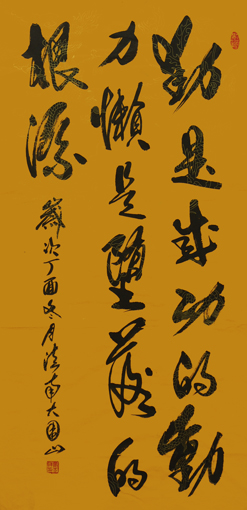 勤是成功的動
力懒是堕落的
根源
歲次丁酉冬月法南大围山